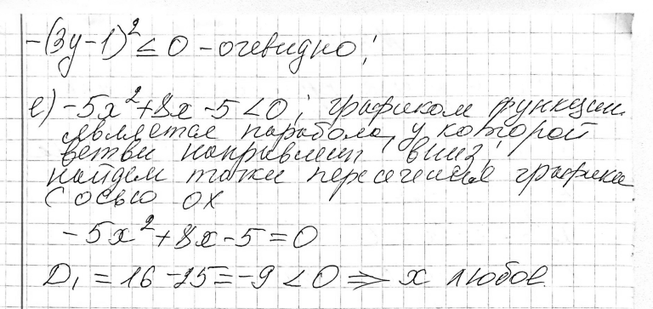 -(3y-1)² ≤ 0 - очевидно;
е) -5x²+8x-5<0; графиком функции
является парабола, у которой
ветви направлены вниз;
найдем точки пересечения графика
с осью ОХ
-5x²+8x-5=0
D₁ = 16-25=-9 <0 ⇒ x любое